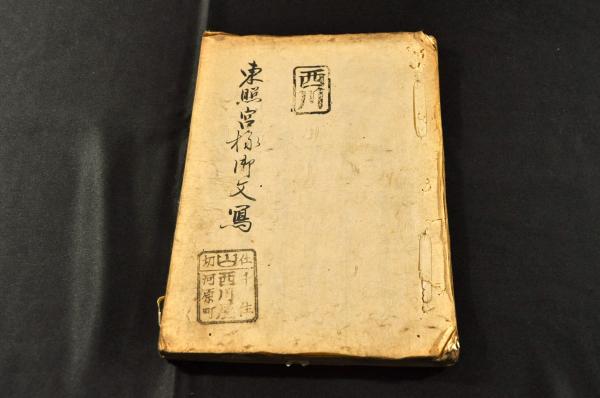 西川
東照宮様御文寫
仕千住
山西川屋
切河原町